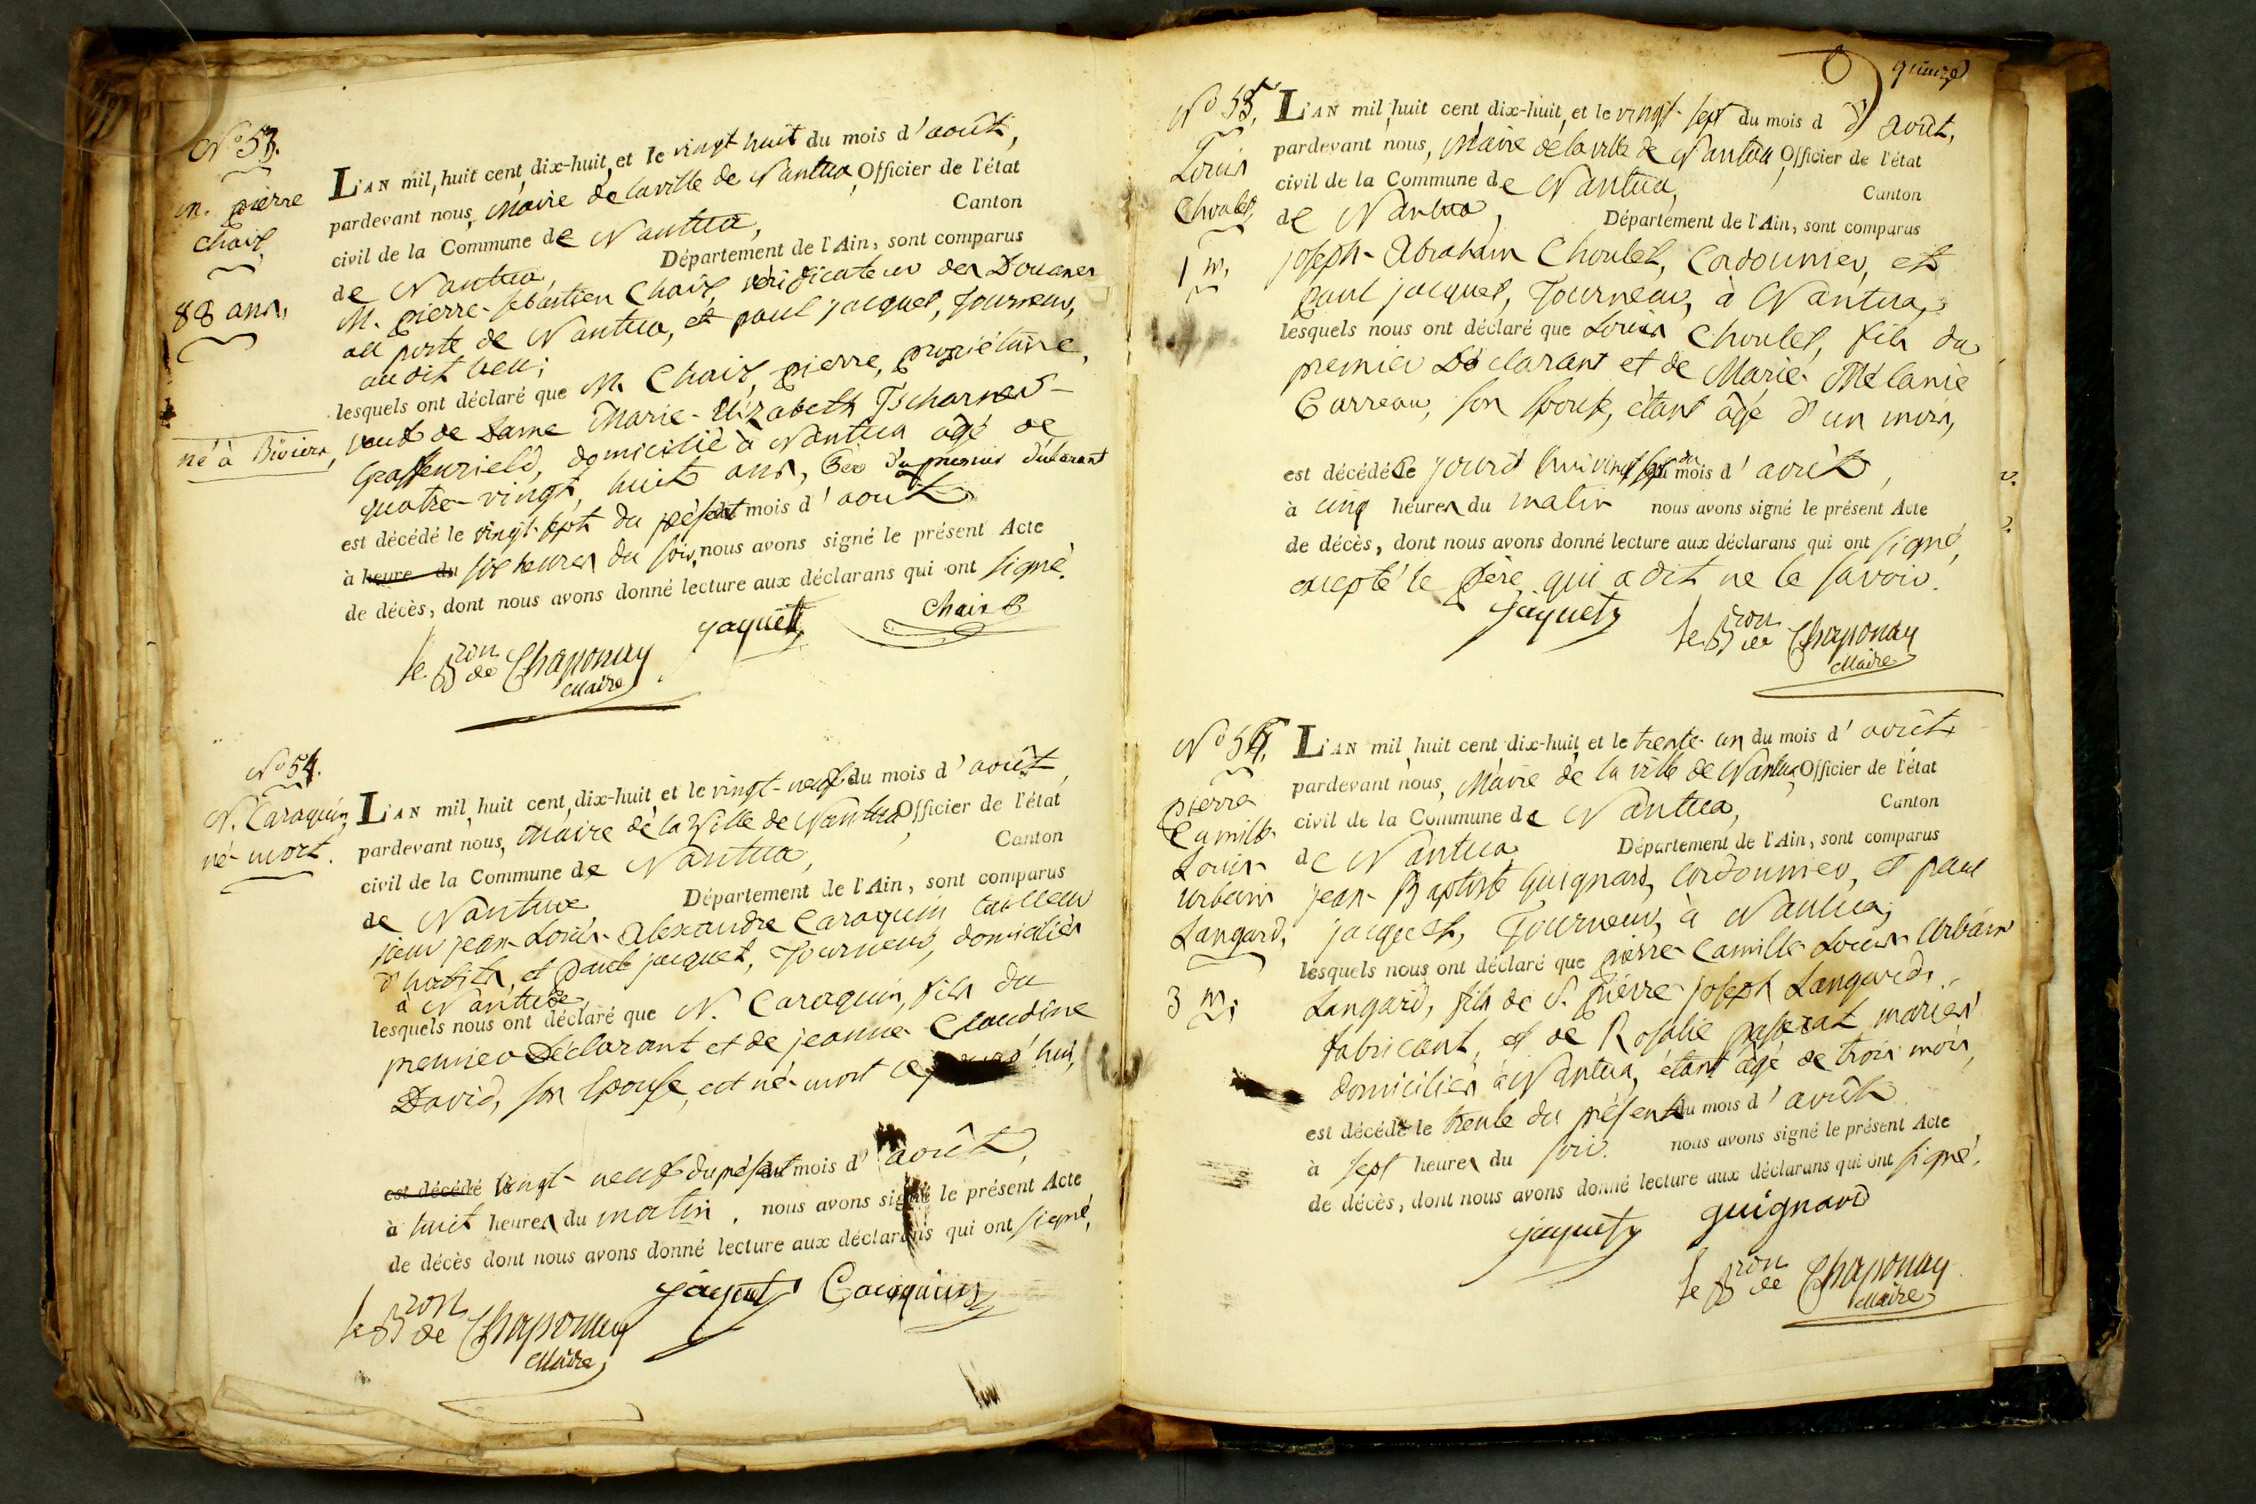 No 53.
M. pierre
Chaix,
88 ans,
né à Biviers,
L'AN mil huit cent dix-huit et le vingt huit du mois d'août,
pardevant nous, Maire de la ville de Nantua, Officier de l'état
civil de la Commune de Nantua, Canton
de Nantua, Département de l'Ain, sont comparus
M. pierre-sébastien Chaix, vérificateur des Douanes
au poste de Nantua, et paul jacquet, Tourneur,
audit lieu;
lesquels ont déclaré que M. Chaix, pierre, propriétaire,
veuf de Dame Marie-Elizabeth Tscharner-
domicilié à Nantua âgé de
quatre-vingt, huit ans, Père du premier déclarant
est décédé le vingt-sept du présent mois d'août
à heure du six heures du soir, nous avons signé le présent Acte
de décès, dont nous avons donné lecture aux déclarans qui ont signé.
jaquet Chaix
le Bron de Chaponay
Maire
No 54.
N. Caraquin,
né-mort.
L'AN mil huit cent dix-huit et le vingt-neuf du mois d'août,
pardevant nous, Maire de la Ville de Nantua, Officier de l'état
civil de la Commune de Nantua, Canton
de Nantua Département de l'Ain, sont comparus
sieur jean-Louis-Alexandre Caraquin tailleur
d'habits, et paul jacquet, Tourneur, domiciliés
à Nantua,
lesquels nous ont déclaré que N. Caraquin, fils du
premier Déclarant et de jeanne-Claudine
David, son Epouse, est né-mort ce jourd'hui,
est décédé le vingt-neuf du présent mois d'août,
à huit heures du matin. nous avons signé le présent Acte
de décès dont nous avons donné lecture aux déclarans qui ont signé,
jaquet Caraquin
le Bron de Chaponay
Maire
quinze
No 55,
Louis
Choulet,
1 m,
L'AN mil huit cent dix-huit et le vingt-sept du mois d d'août,
pardevant nous, Maire de la ville de Nantua, Officier de l'état
civil de la Commune de Nantua, Canton
de Nantua, Département de l'Ain, sont comparus
joseph-Abraham Choulet, Cordonnier, et
paul jacquet, Tourneur, à Nantua,
lesquels nous ont déclaré que Louis Choulet, fils du
premier Déclarant et de Marie-Mélanie
Carreau, son Epouse, étant âgé d'un mois,
est décédé Ce jourd'hui vingt sept du mois d'août,
à cinq heures du matin nous avons signé le présent Acte
de décès, dont nous avons donné lecture aux déclarans qui ont signé,
excepté le père qui a dit ne le savoir.
jaquet
le Bron de Chaponay
Maire
No 56,
pierre
Camille
Louis
Urbain
Langard,
3 m,
L'AN mil huit cent dix-huit et le trente-un du mois d'août
pardevant nous, Maire de la ville de Nantua, Officier de l'état
civil de la Commune de Nantua, Canton
de Nantua, Département de l'Ain, sont comparus
jean-Baptiste Guignard, Cordonnier, et paul
jacquet, Tourneur, à Nantua,
lesquels nous ont déclaré que pierre-Camille-Louis-Urbain
Langard, fils de S. pierre-joseph Langard,
fabricant, et de Rosalie passerat, mariés
domiciliés à Nantua, étant âgé de trois mois,
est décédé le trente du présent du mois d'août
à sept heures du soir. nous avons signé le présent Acte
de décès, dont nous avons donné lecture aux déclarans qui ont signé.
jaquet guignard
le Bron de Chaponay
Maire